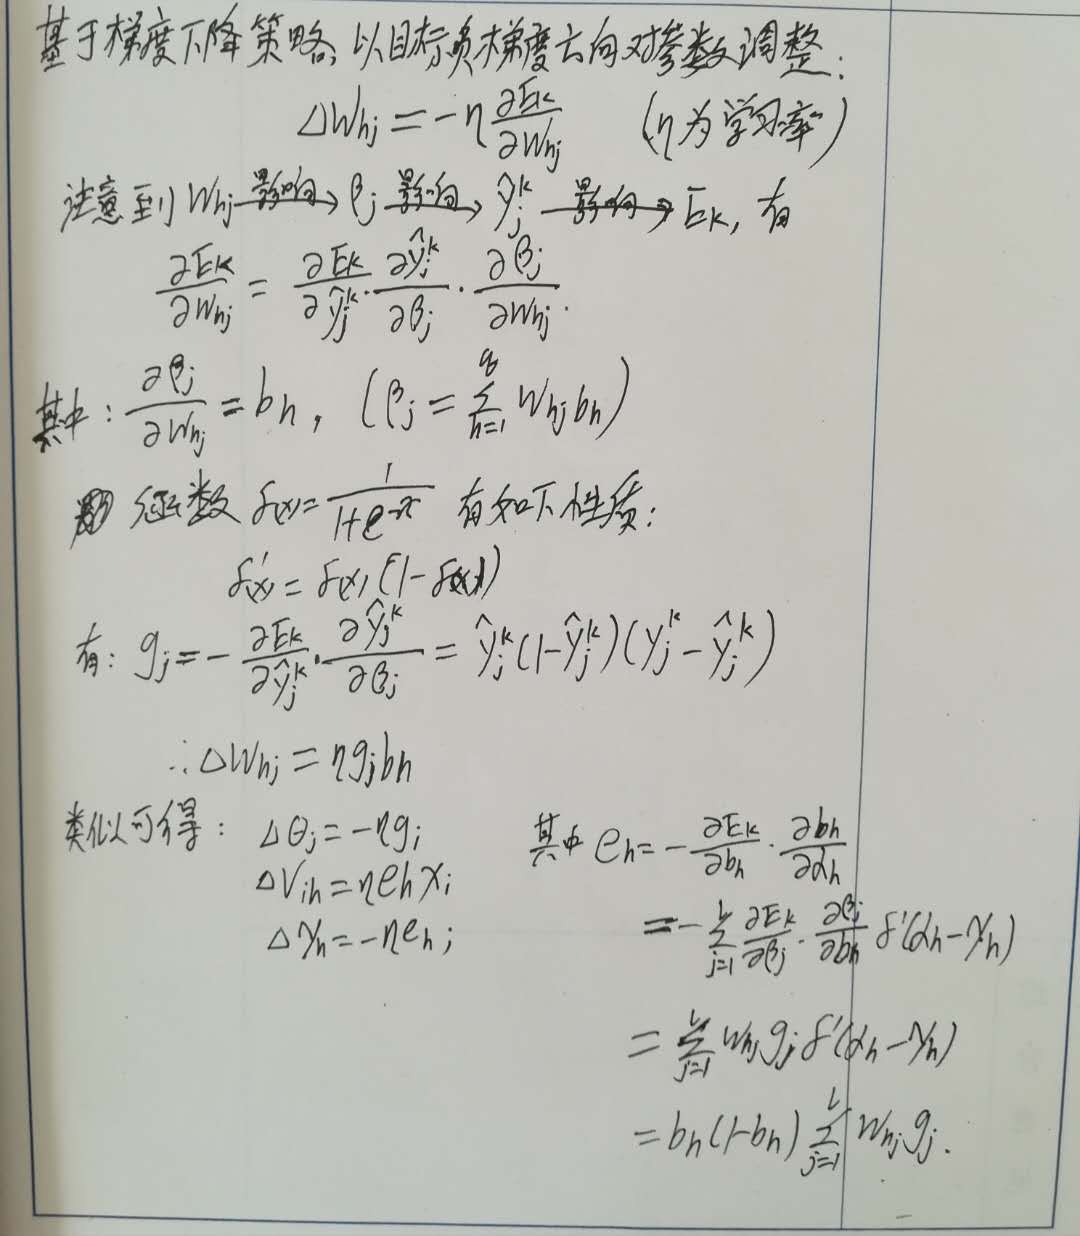 基于梯度下降策略,以目标负梯度方向对参数调整:
△Whj = -η ∂Ek/∂Whj (η为学习率)
注意到 Whj —影响→ βj —影响→ ŷj^k —影响→ Ek, 有
∂Ek/∂Whj = ∂Ek/∂ŷj^k · ∂ŷj^k/∂βj · ∂βj/∂Whj.
其中: ∂βj/∂Whj = bh, (βj = Σ_{h=1}^{q} Whj bh)
函数 f(x) = 1/(1+e^-x) 有如下性质:
f'(x) = f(x)(1-f(x))
有: gj = -∂Ek/∂ŷj^k · ∂ŷj^k/∂βj = ŷj^k(1-ŷj^k)(yj^k-ŷj^k)
∴△Whj = ηgjbh
类似可得: △θj = -ηgj
△Vih = ηehxi
△γh = -ηeh;
其中 eh = -∂Ek/∂bh · ∂bh/∂αh
= -Σ_{j=1}^{l} ∂Ek/∂βj · ∂βj/∂bh f'(αh-γh)
= Σ_{j=1}^{l} Whj gj f'(αh-γh)
= bh(1-bh) Σ_{j=1}^{l} Whj gj.